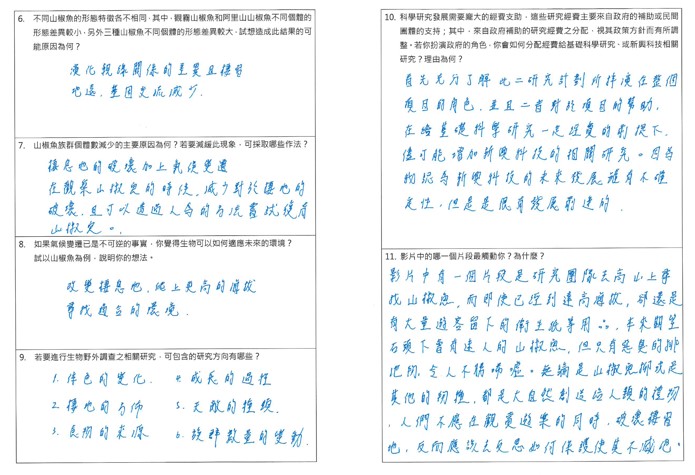 6. 不同山椒魚的形態特徵各不相同,其中,觀霧山椒魚和阿里山山椒魚不同個體的
形態差異較小,另外三種山椒魚不同個體的形態差異較大,試想造成此結果的可
能原因為何?
演化親緣關係的差異且棲習
地遠,基因交流減少.
7. 山椒魚族群個體數減少的主要原因為何?若要減緩此現象,可採取哪些作法?
棲息地的破壞加上氣候變遷
在觀察山椒魚的時候,減少對於棲地的
破壞,且可以透過人為的方法嘗試復育
山椒魚。
8. 如果氣候變遷已是不可逆的事實,你覺得生物可以如何適應未來的環境?
試以山椒魚為例,說明你的想法。
改變棲息地,爬上更高的海拔
尋找適合的環境.
9. 若要進行生物野外調查之相關研究,可包含的研究方向有哪些?
1. 体色的變化. 4. 成長的過程
2. 棲地的分佈 5. 天敵的種類.
3. 食物的來源 6. 族群數量的變動.
10. 科學研究發展需要龐大的經費支助,這些研究經費主要來自政府的補助或民間
團體的支持;其中,來自政府補助的研究經費之分配,視其政策方針而有所調
整。若你扮演政府的角色,你會如何分配經費給基礎科學研究、或新興科技相關
研究?理由為何?
首先充分了解此二研究計劃所扮演在整個
項目的角色,並且二者對於項目的幫助,
在給基礎科學研究一定經費的前提下,
儘可能增加新興科技的相關研究。因為
我認為新興科技的未來發展雖有不確
定性,但是是很有發展前途的.
11. 影片中的哪一個片段最觸動你?為什麼?
影片中有一個片段是研究團隊去高山上尋
找山椒魚,而即使已經到達高海拔,卻還是
有大量遊客留下的衛生紙等用品,本來關望
石頭下會有迷人的山椒魚,但只有惡臭的排
泄物,令人不禁唏噓。無論是山椒魚抑或是
其他的物種,都是大自然創造給人類的禮物
,人們不應在觀賞遊樂的同時,破壞棲習
地,反而應該去反思如何保護使其不滅絕。